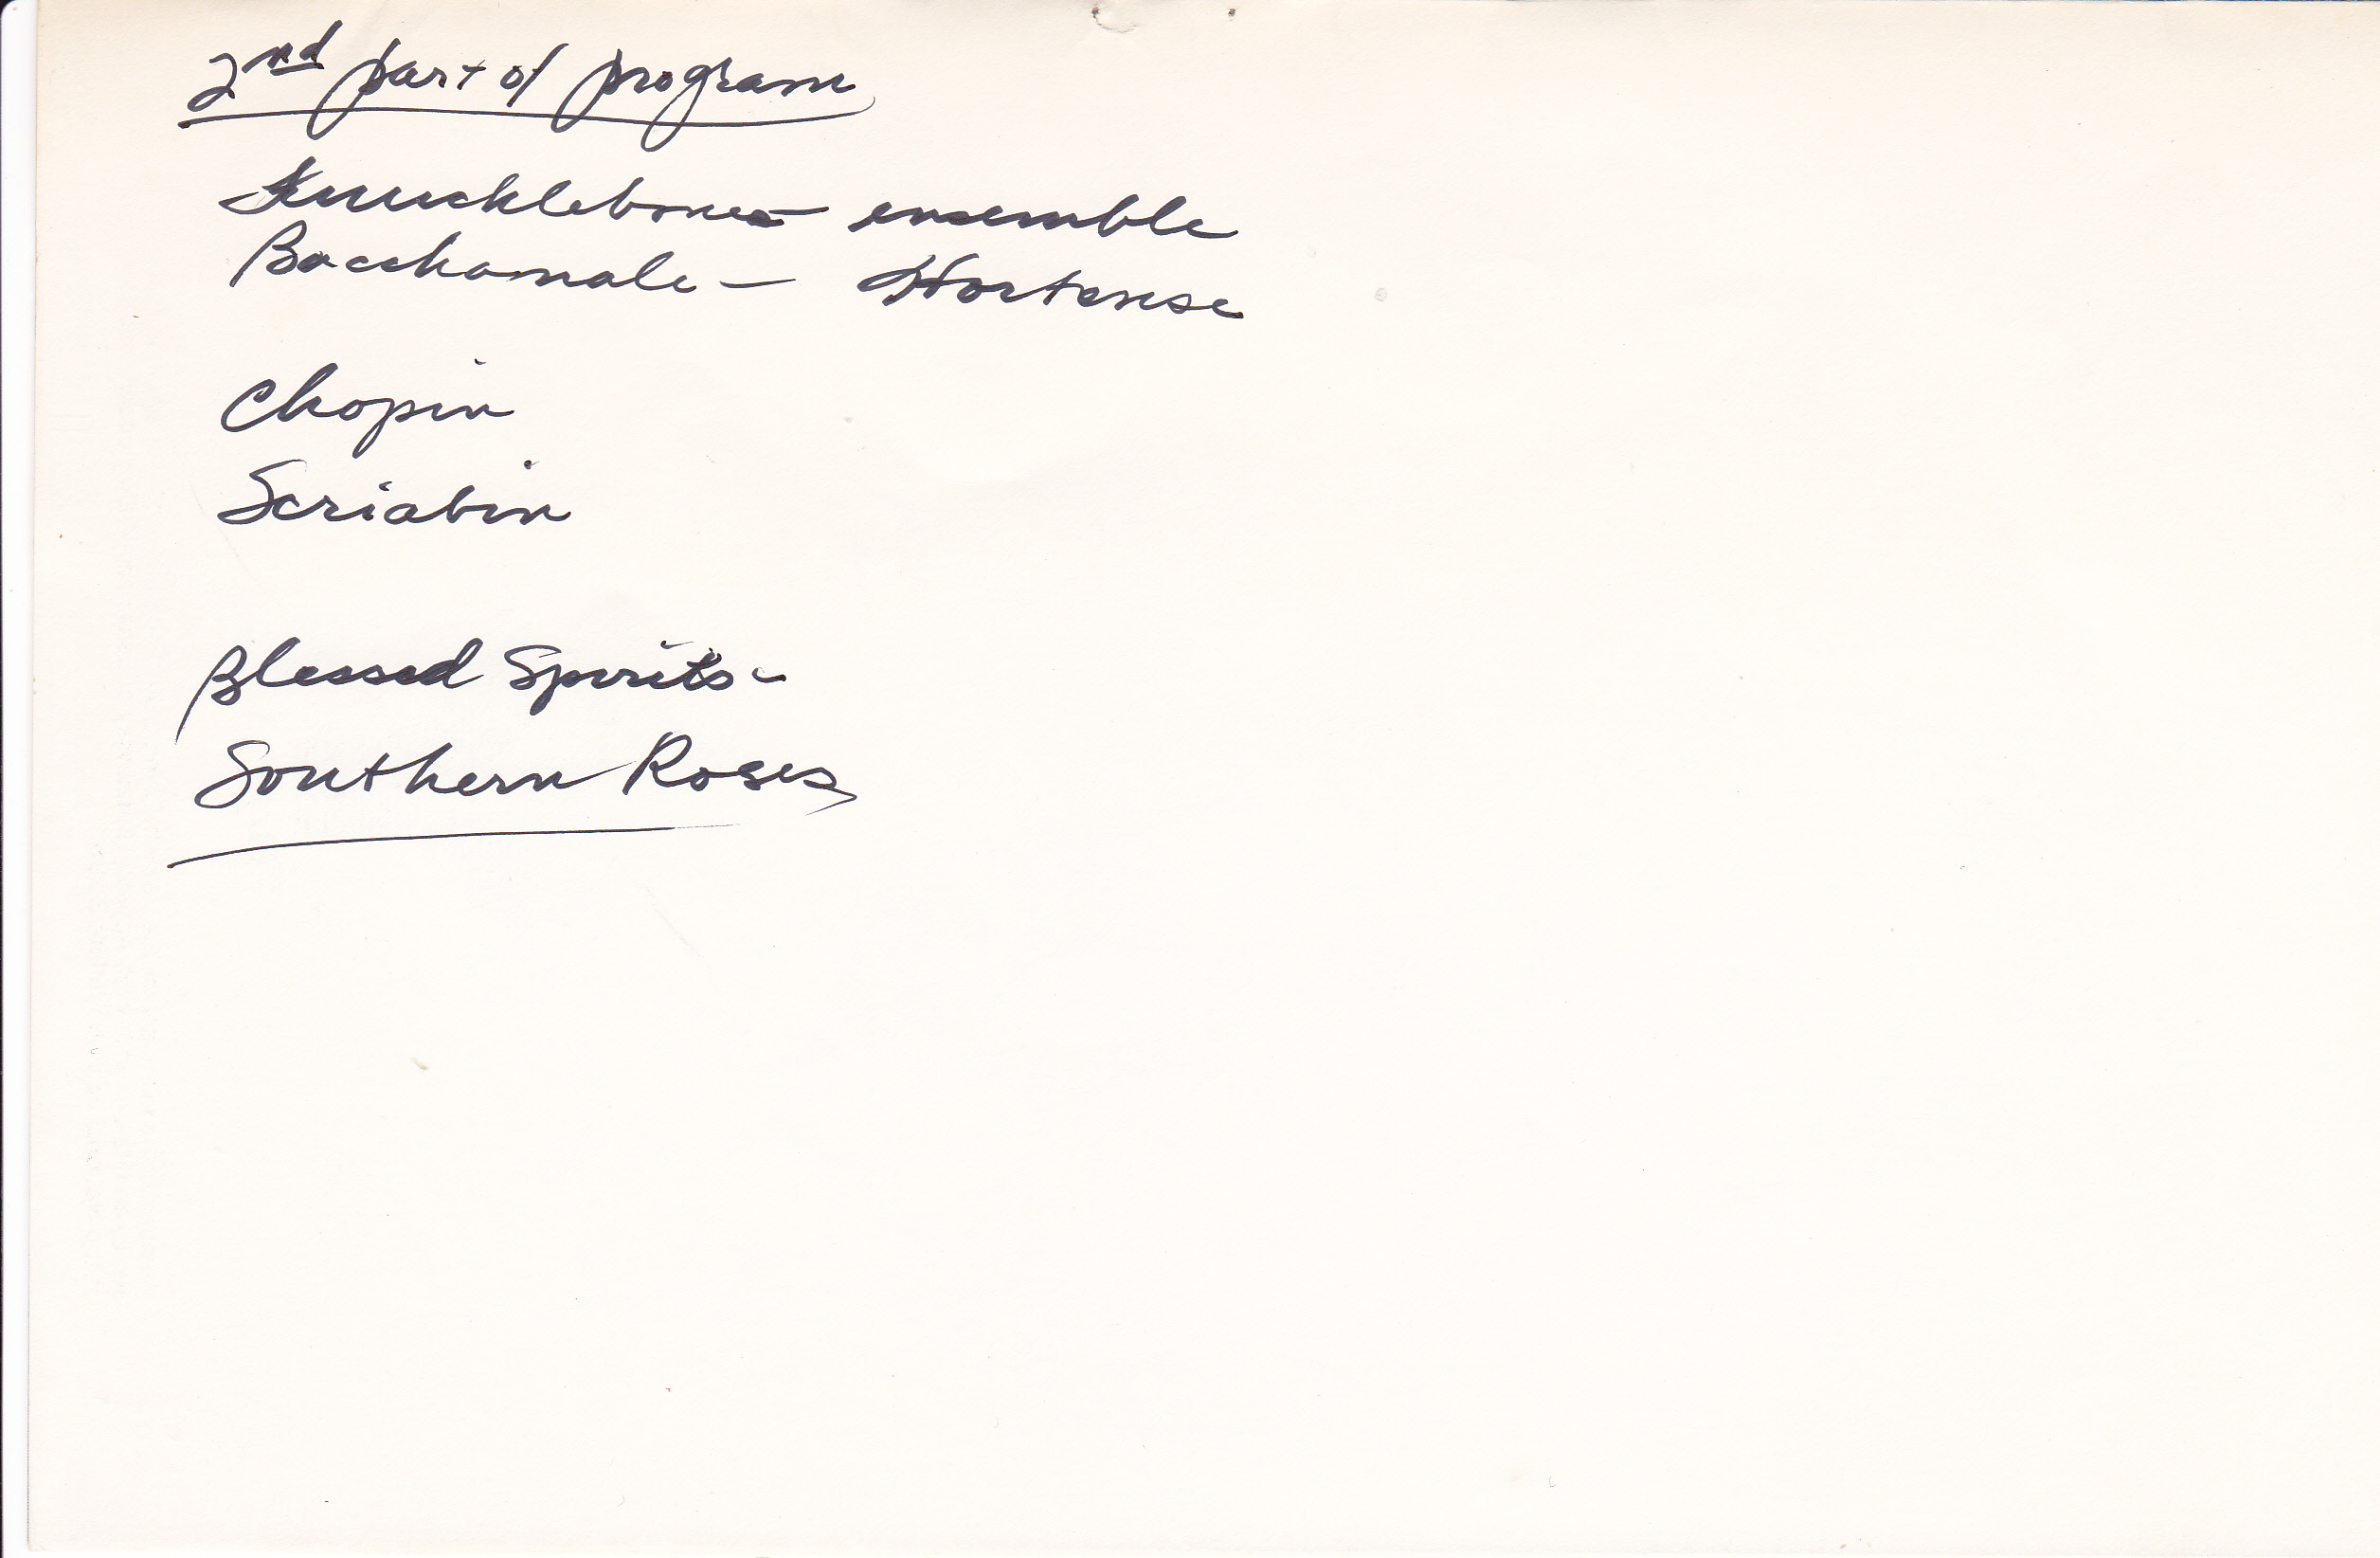 2nd part of program
Knucklebones - ensemble
Bacchanale - Hortense
Chopin
Scriabin
Blessed Spirits -
Southern Roses